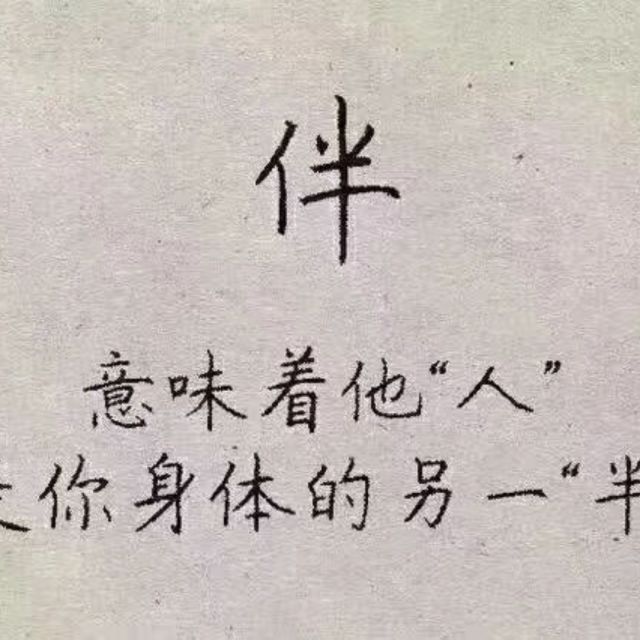 伴
意味着他“人”
你身体的另一“半